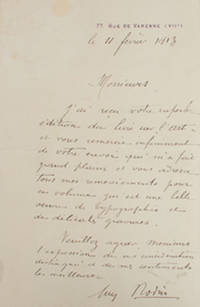 77 RUE DE VARENNE (VIIe)
le 11 février 1913
Messieurs
J'ai reçu votre
édition du livre sur l'art
et vous remercie infiniment
de votre envoi qui m'a fait
grand plaisir et vous adresse
tous mes remerciements pour
ce volume qui est une belle
œuvre de typographie et
de délicates gravures.
Veuillez agréer messieurs
l'expression de ma considération
distinguée et de mes sentiments
les meilleurs
Aug Rodin